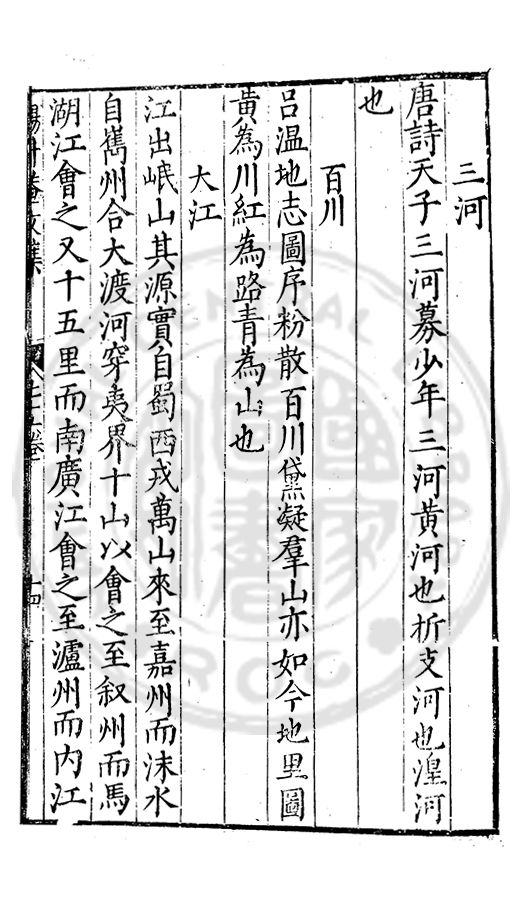 三河
唐詩天子三河募少年三河黄河也析支河也湟河
也
百川
吕温地志圖序粉散百川黛凝羣山亦如今地里圖
黄為川紅為路青為山也
大江
江出岷山其源實自蜀西戎萬山來至嘉州而沫水
自嶲州合大渡河穿夷界十山以會之至叙州而馬
湖江會之又十五里而南廣江會之至瀘州而内江